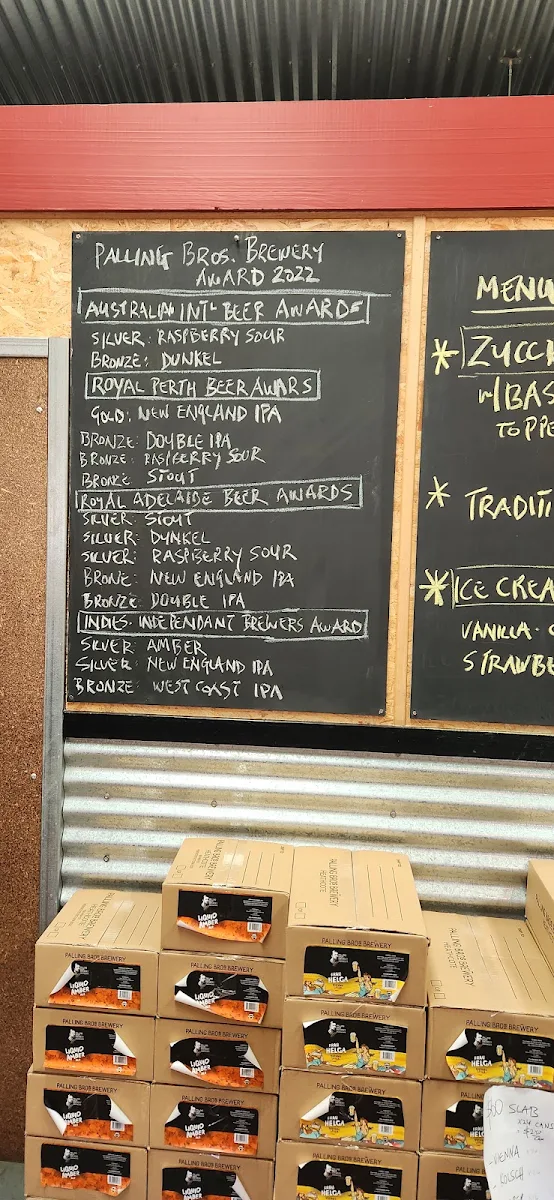 PALLING BROS. BREWERY
AWARD 2022
AUSTRALIAN INT'L BEER AWARDS
SILVER: RASPBERRY SOUR
BRONZE: DUNKEL
ROYAL PERTH BEER AWARS
GOLD: NEW ENGLAND IPA
BRONZE: DOUBLE IPA
BRONZE: RASPBERRY SOUR
BRONZE STOUT
ROYAL ADELAIDE BEER AWARDS
SILVER: STOUT
SILVER: DUNKEL
SILVER: RASPBERRY SOUR
BRONE: NEW ENGLAND IPA
BRONZE: DOUBLE IPA
INDIES. INDEPENDANT BREWERS AWARD
SILVER: AMBER
SILVER: NEW ENGLAND IPA
BRONZE: WEST COAST IPA
MENU
* ZUCCH
W/ BAS
TOPPE
* TRADITI
* ICE CREA
VANILLA
STRAWBE
PALLING BROS BREWERY
HEATHCOTE
PALLING BROS BREWERY
LIQUID
AMBER
PALLING BROS BREWERY
HELGA
SLAB
x24 CANS
VIENNA
KOLSCH